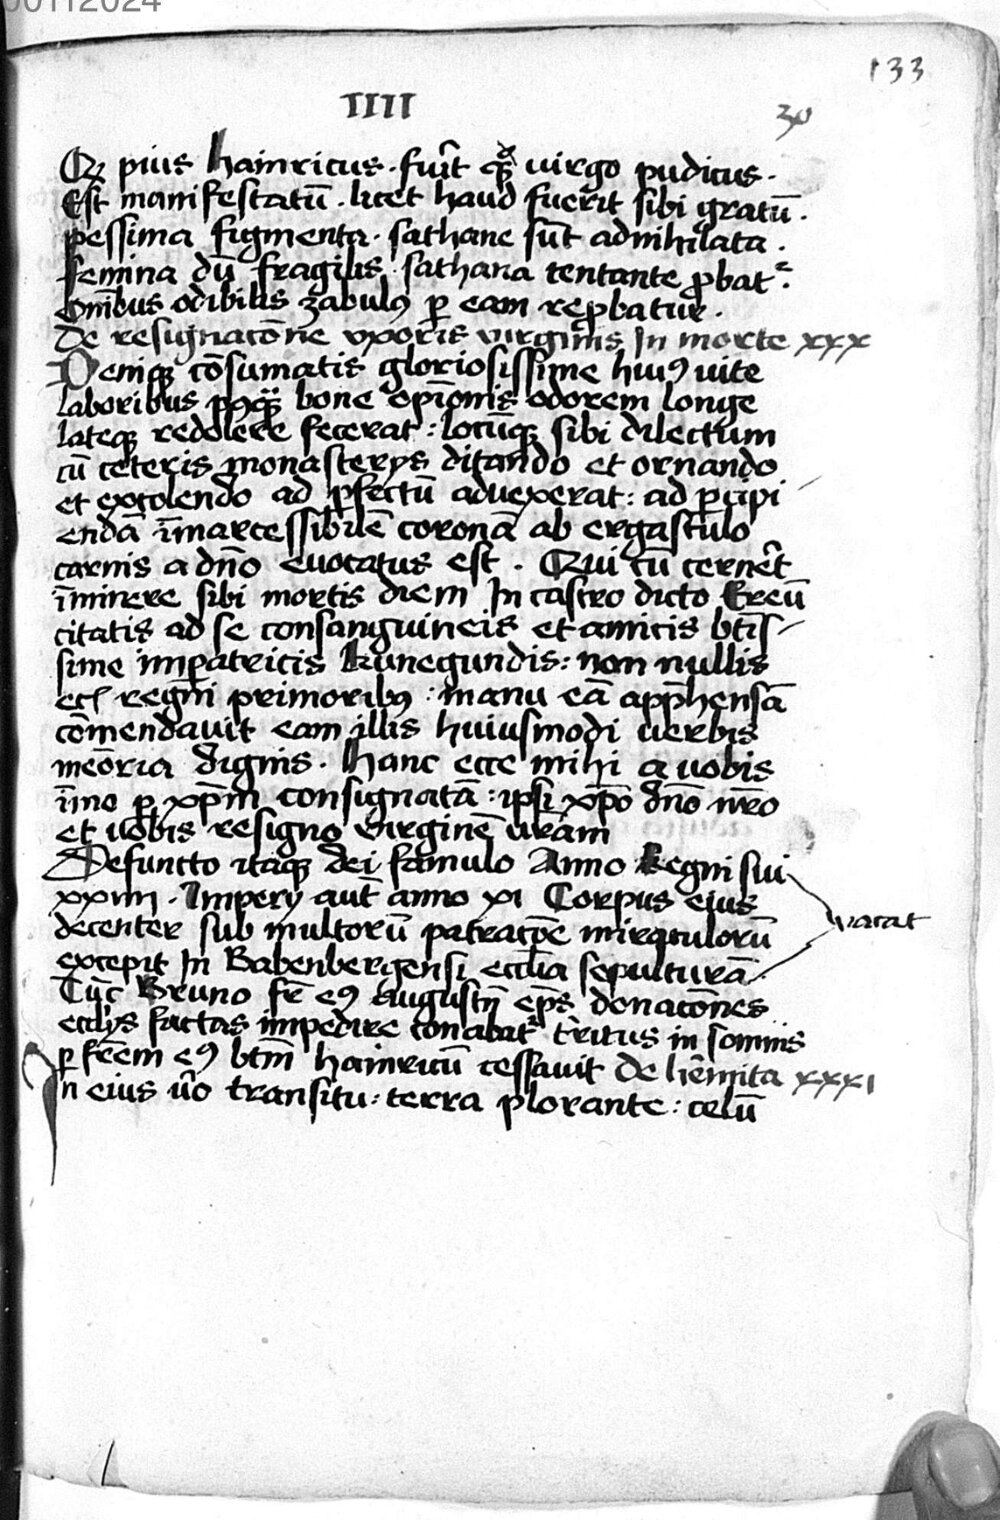 00112024
133
IIII
30
Qz pius hainricus · fuit qz virgo pudicus ·
Est manifestatū · licet haud fuerit sibi gratū ·
pessima figmenta · sathane sūt adnihilata ·
femina dū fragilis · sathana tentante ꝓbatr ·
Omībus odibilis zabulꝰ ꝑ eam reꝓbatur ·
De resignatōne vxoris virginis In morte xxx
Deniqꝫ cōsumatis gloriosissime huiꝰ uite
laboribus bone opīonis odorem longe
lateqꝫ redolere fecerat : locūqꝫ sibi dilectum
cū ceteris monasterys ditando et ornando
et extolendo ad ꝓfectū aduexerat : ad ꝑcipi
endā īmarcessibilē coronā ab ergastulo
carnis a dn̄o euocatus est · Qui cū cerneret
īminere sibi mortis diem In castro dicto Ereū
citatis ad se consanguineis et amicis btīs
sime impatricis kunegundis : non nullis
eccl regni primoribꝰ : manu eā appͤhensā
cōmendauit eam illis huiusmodi uerbis
meōria dignis · Hanc ecce mihi a uobis
īmo ꝑ xp̄m consignatā : ipsi xp̄o dn̄o nr̄o
et uobis resigno virginē vrām
Defuncto itaqꝫ dei famulo Anno Regni sui
xxiiii · Impery aut̄ anno xi Corpus eius
vacat
decenter sub multorū patratōe miraculorū
excepit In Babenbergensi eccl̄ia sepulturā
Tūc Bruno fr̄ eꝰ Augustn̄ ep̄s donatōnes
eccl̄ys factas impedire conabatr t̄ritus in somnis
ꝑ fr̄em eꝰ btm̄ hainricū cessauit De h̄emita xxxi
In eius v̄o transitu : terra plorante : celū